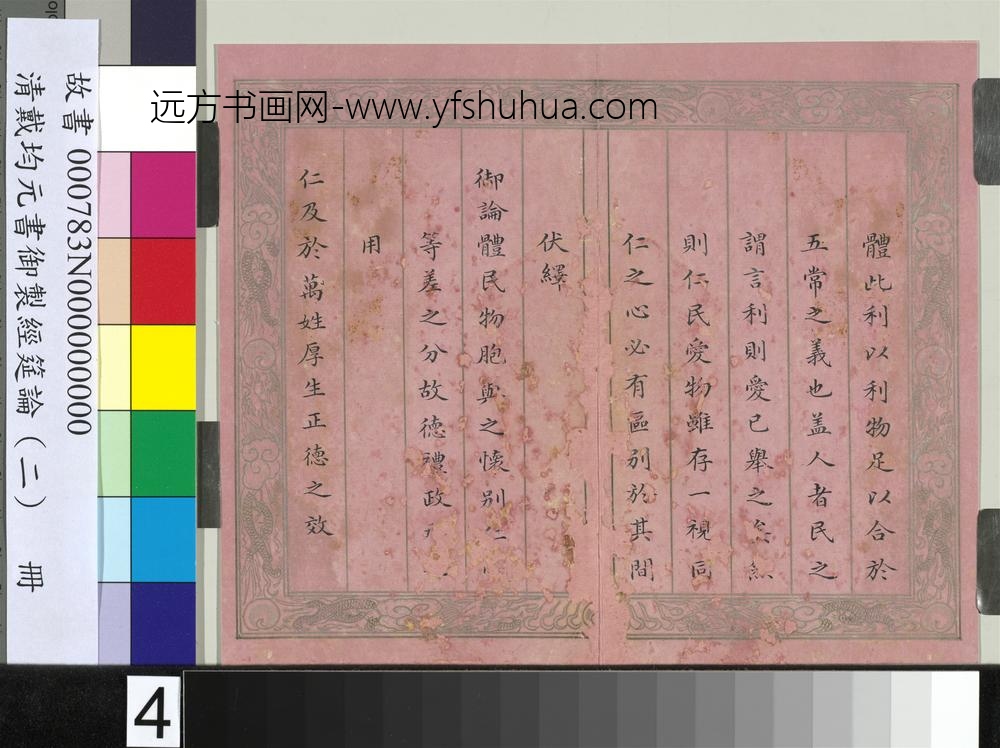 远方书画网-www.yfshuhua.com
故書 000783N000000000
清戴均元書御製經筵論（二） 冊
體此利以利物足以合於
五常之義也盖人者民之
謂言利則愛已舉之矣
則仁民愛物雖存一視同
仁之心必有區別於其間
伏繹
御論體民物胞與之懷別
等差之分故德禮政
用
仁及於萬姓厚生正德之效
4